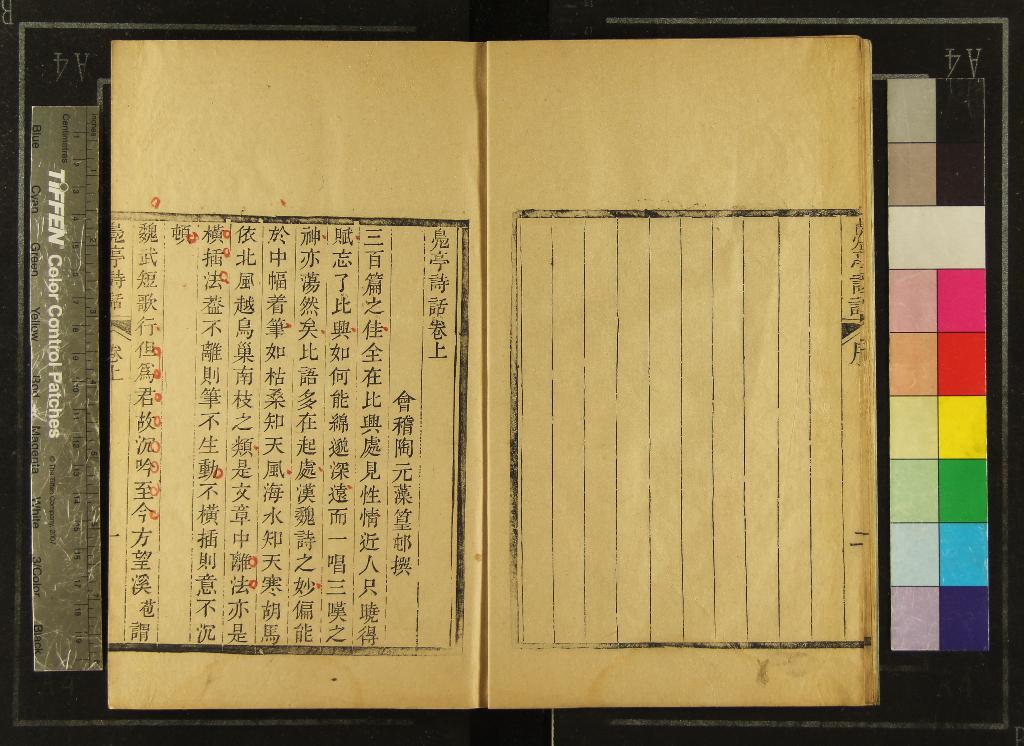 鳧亭詩話 序
二
鳧亭詩話卷上
會稽陶元藻篁邨撰
三百篇之佳全在比興處見性情近人只曉得
賦忘了比興如何能綿邈深遠而一唱三嘆之
神亦蕩然矣比語多在起處漢魏詩之妙偏能
於中幅着筆如枯桑知天風海水知天寒胡馬
依北風越鳥巢南枝之類是文章中離法亦是
橫插法葢不離則筆不生動不橫插則意不沉
頓
魏武短歌行但爲君故沉吟至今方望溪苞謂
鳧亭詩話 卷上
一
A4
A4
Inches
Centimetres
TIFFEN Color Control Patches
© The Tiffen Company, 2007
Blue
Cyan
Green
Yellow
Red
Magenta
White
3/Color
Black